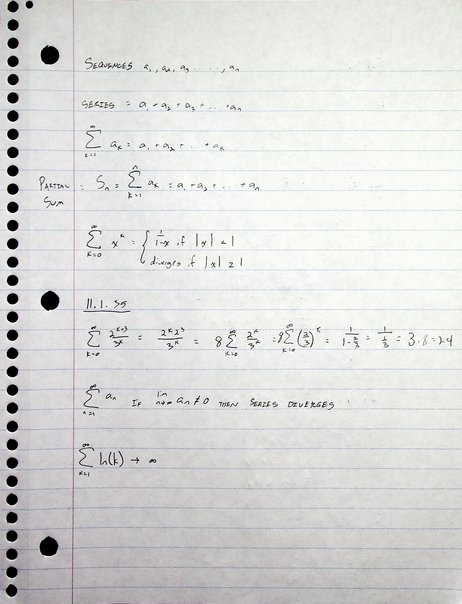 SEQUENCES a₁, a₂, a₃ ..., aₙ
SERIES = a₁ + a₂ + a₃ + ... + aₙ
∞ ∑ k=1 aₖ = a₁ + a₂ + ... + aₖ
PARTIAL SUM : Sₙ = n ∑ k=1 aₖ = a₁ + a₂ + ... + aₙ
∞ ∑ k=0 xᵏ = { 1/(1-x) if |x| < 1
diverges if |x| ≥ 1
11.1.55
∞ ∑ k=0 2ᵏ⁺³/3ᵏ = 2ᵏ2³/3ᵏ = 8 ∞ ∑ k=0 2ᵏ/3ᵏ = 8 ∞ ∑ k=0 (2/3)ᵏ = 1/(1-2/3) = 1/(1/3) = 3·8=24
∞ ∑ n=1 aₙ IF lim n→∞ aₙ ≠ 0 THEN SERIES DIVERGES
∞ ∑ k=1 ln(k) → ∞